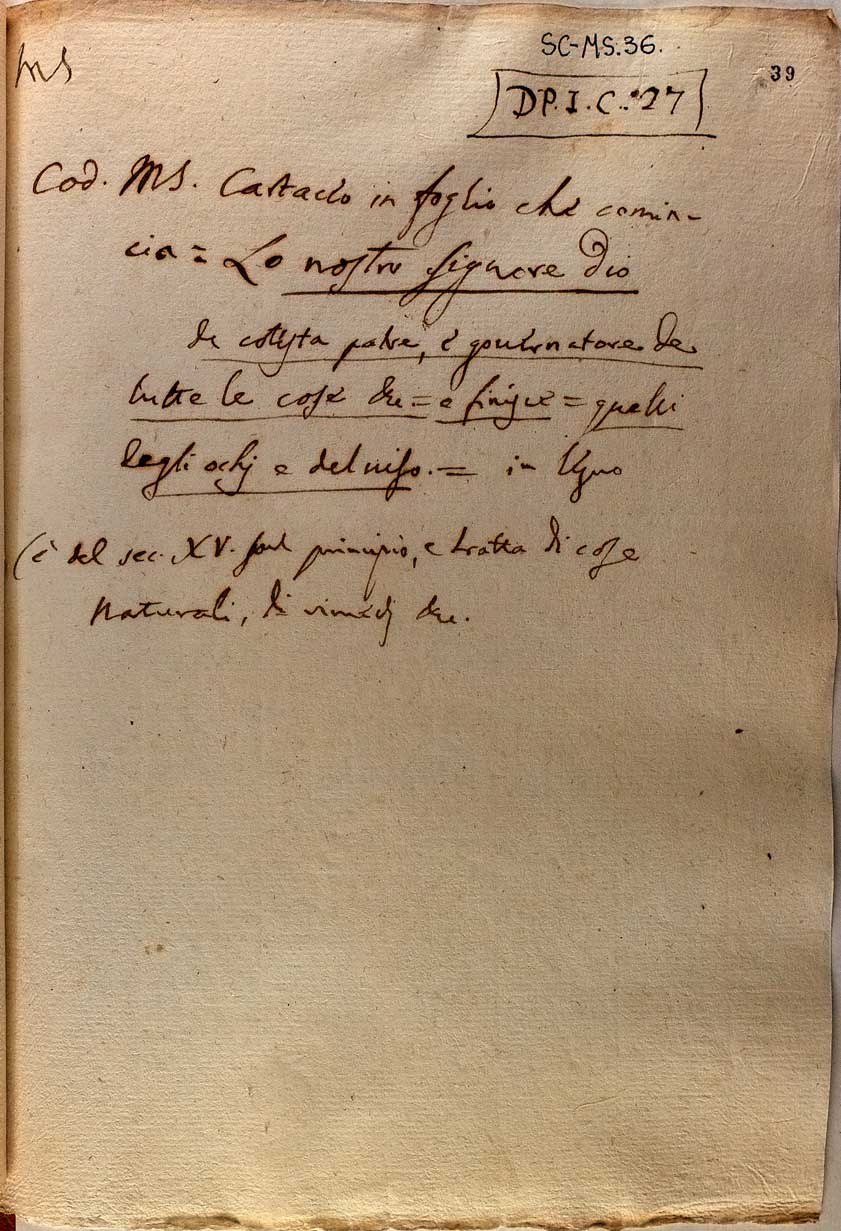 SC-MS.36.
39
MS
DP. I. C. 27
Cod. MS. Cartaceo in foglio che comin-
cia = Lo nostro Signore Dio
de padre, e governatore de
tutte le cose &c = e finisce = quelli
degli ochj e del viso. = in
(è del sec. XV. sul principio, e tratta di cose
naturali, di rimedj &c.